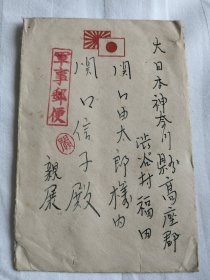 大日本神奈川縣高座郡
渋谷村福田
関口由太郎様内
関口信子殿
親展
軍事郵便